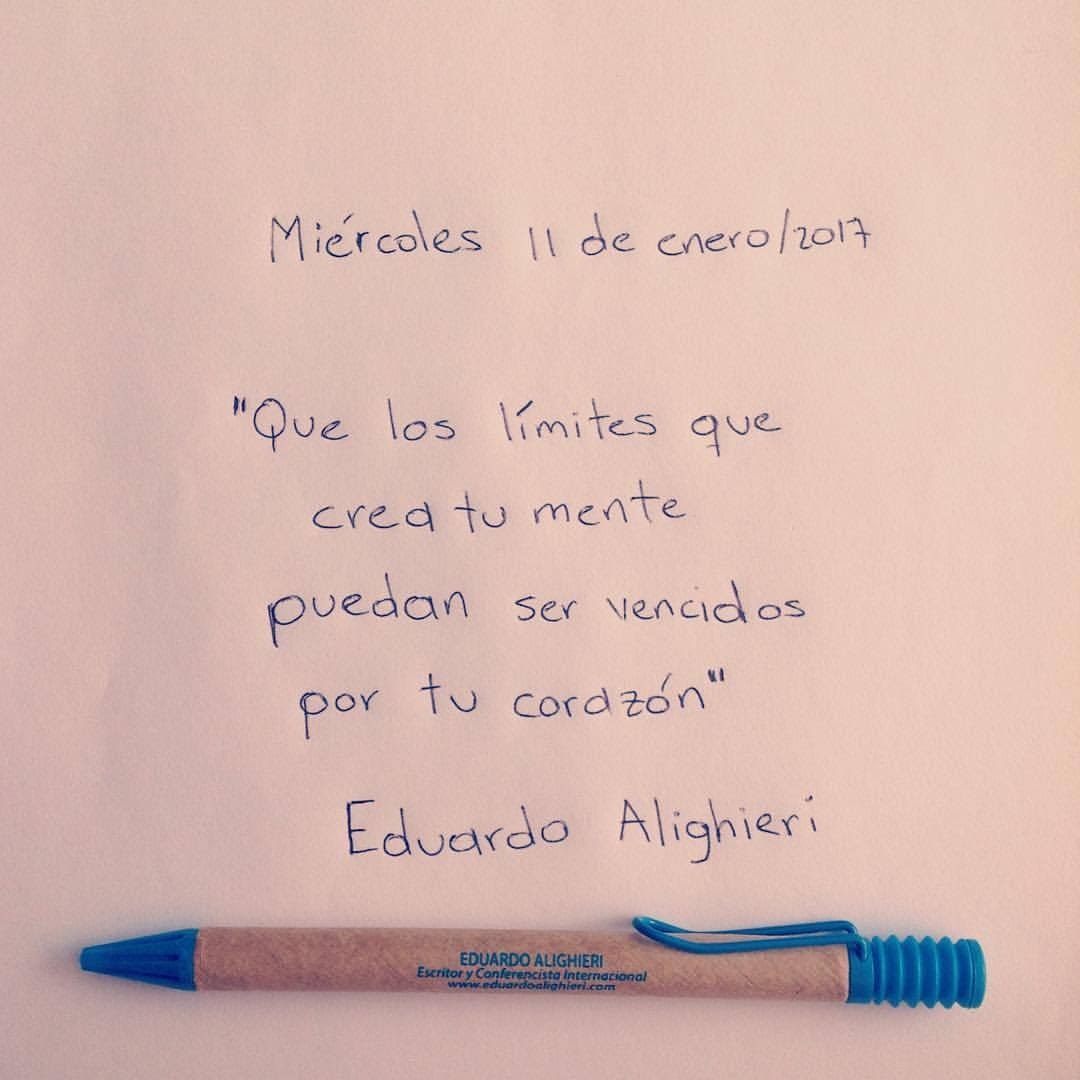 Miércoles 11 de enero/2017
"Que los límites que
crea tu mente
puedan ser vencidos
por tu corazón"
Eduardo Alighieri
EDUARDO ALIGHIERI
Escritor y Conferencista Internacional
www.eduardoalighieri.com